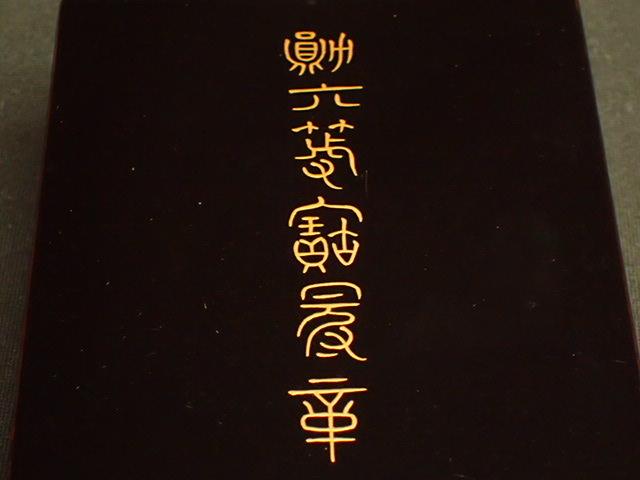 勛六等寶冠章